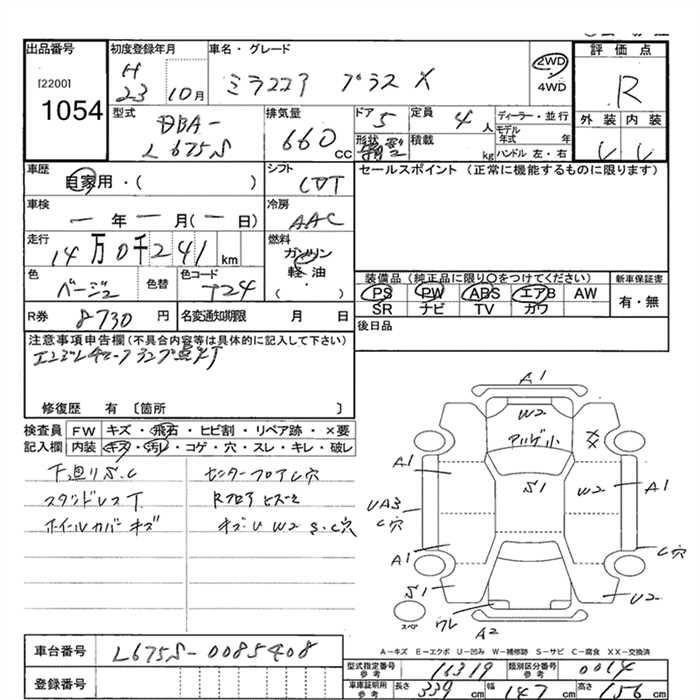 出品番号
[2200]
1054
初度登録年月
H
23 10月
車名・グレード
ミラココア プラス X
2WD
4WD
評価点
R
外装 内装
型式
DBA-
L675S
排気量
660
cc
ドア 5
形状
定員 4 人
積載 kg
ディーラー・並行
モデル年式 年
ハンドル 左・右
車歴
自家用・( )
シフト
CVT
セールスポイント (正常に機能するものに限ります)
車検
ー 年 ー 月(ー 日)
冷房
AAC
走行
14万0千241 km
燃料
ガソリン
軽・油
( )
色
ベージュ
色替
色コード
T24
装備品(純正品に限り○をつけてください)
新車保証書
PS PW ABS エアB AW
SR ナビ TV カワ
有・無
R券 8730 円
名変通知期限 月 日
後日品
注意事項申告欄(不具合内容等は具体的に記入して下さい)
エンジンチェックランプ点灯
修復歴 有〔箇所 〕
検査員 FW キズ・飛石・ヒビ割・リペア跡・×要
記入欄 内装 キズ・汚レ・コゲ・穴・スレ・キレ・破レ
下廻りS.C
スタッドレスT
ホイールカバーキズ
センターフロアC穴
キズ・U W2 S.C穴
A1
W2
S1
A1
UA3
C穴
A1
S1
ワレ
A2
スペア
XX
W2
A1
C穴
U2
A-キズ E-エクボ U-凹み W-補修跡 S-サビ C-腐食 XX-交換済
車台番号
L675S-0085408
登録番号
型式指定番号
参考
16319
類別区分番号
参考
0014
車庫証明用
参考
長さ 339 cm
幅 147 cm
高さ 156 cm